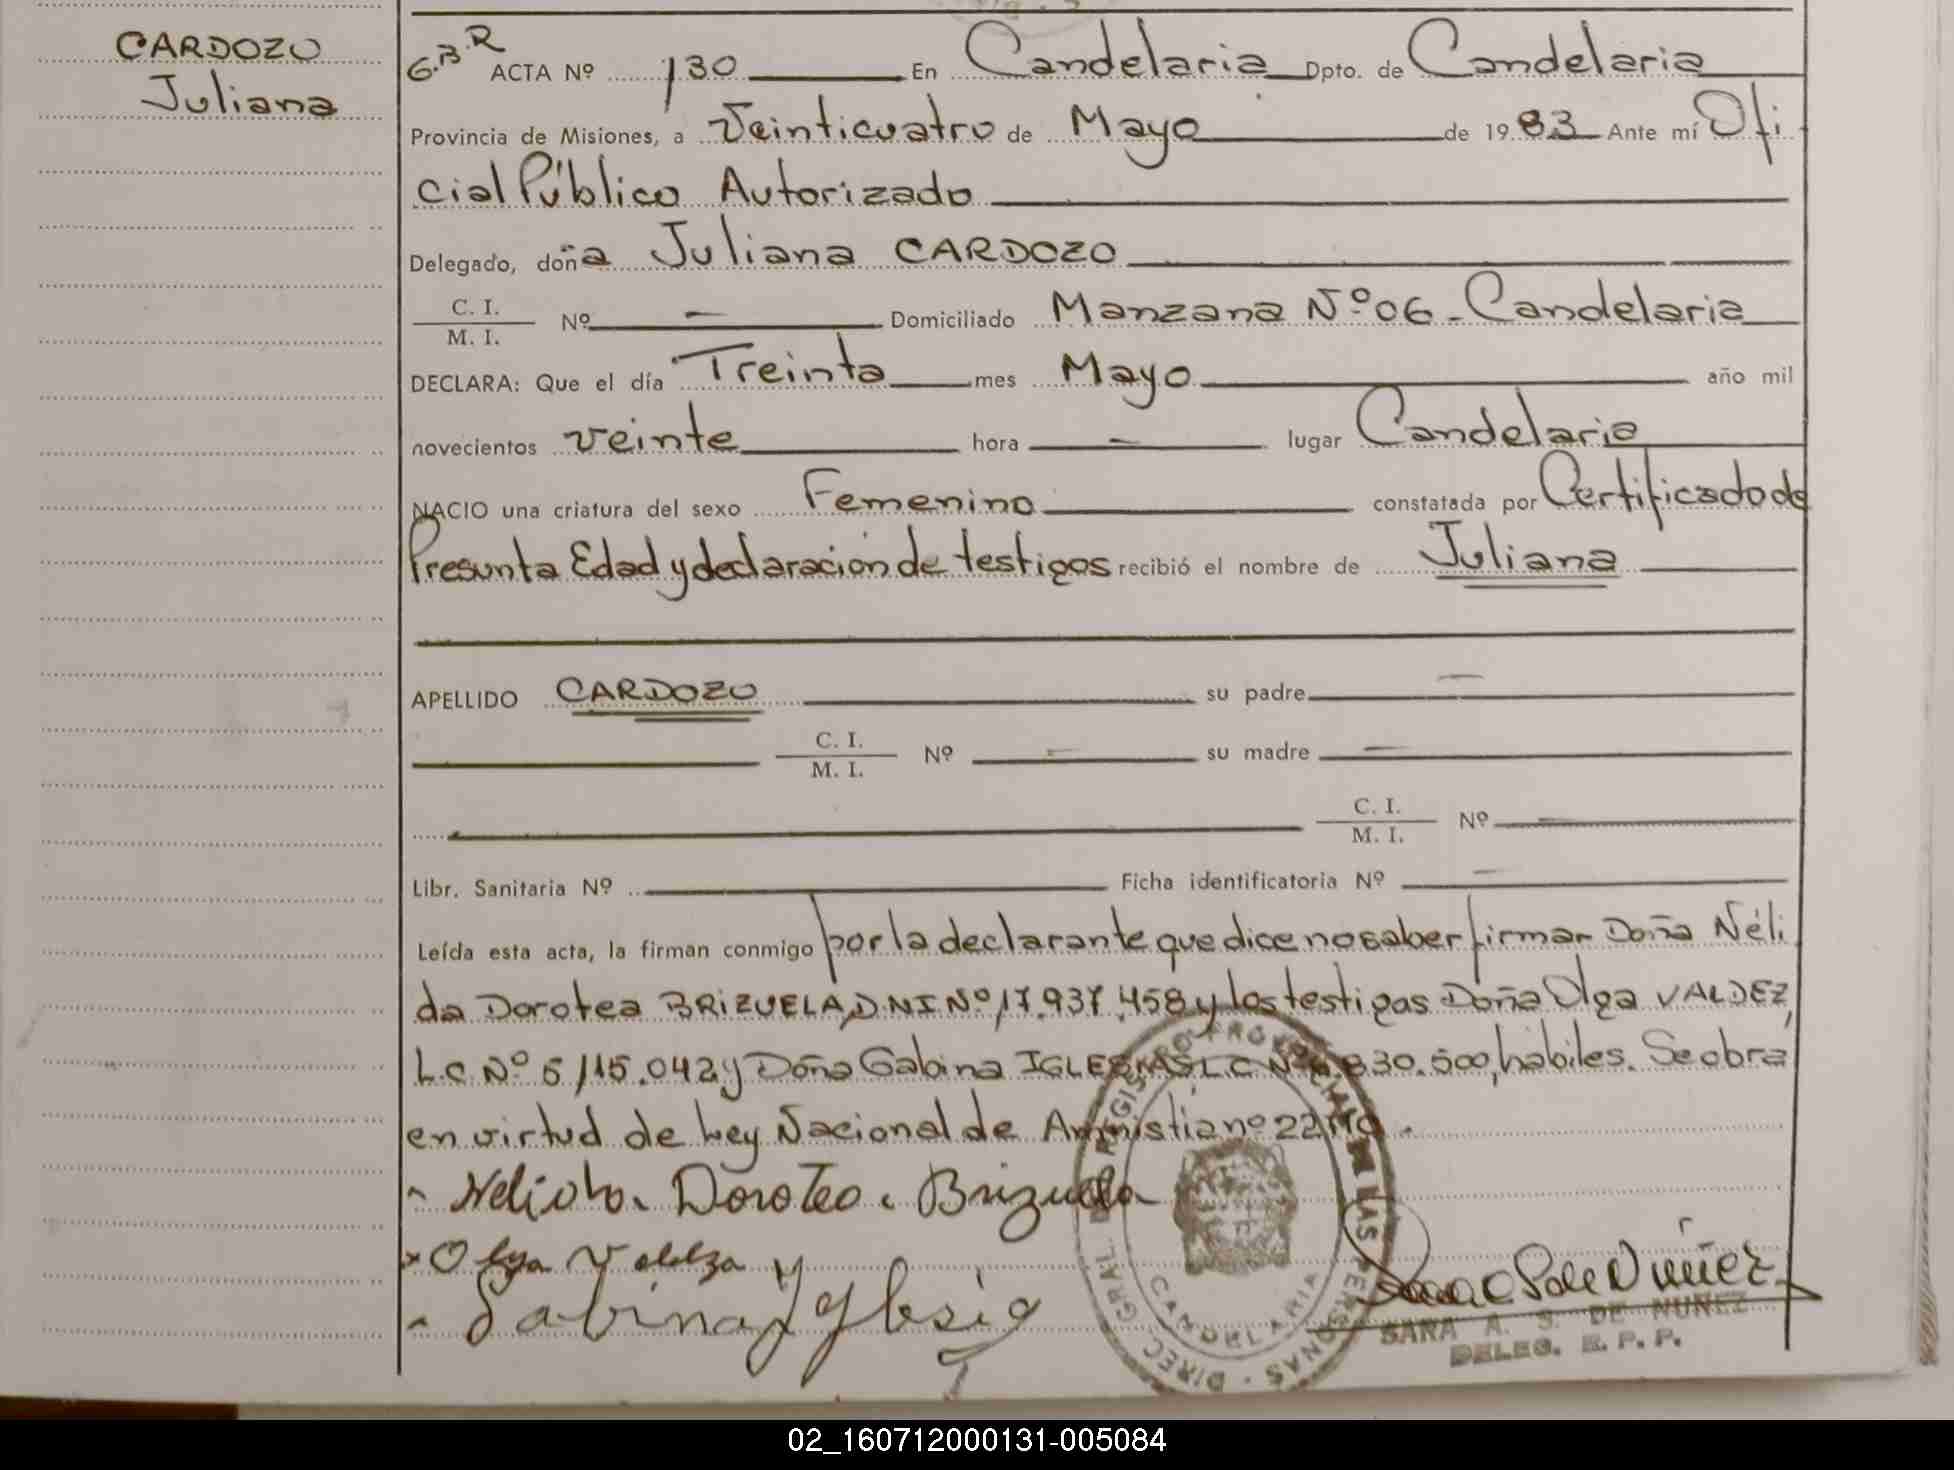 CARDOZO
Juliana
G.B.R ACTA Nº 130 En Candelaria Dpto. de Candelaria
Provincia de Misiones, a Veinticuatro de Mayo de 1983 Ante mí Ofi
cial Público Autorizado
Delegado, doña Juliana CARDOZO
C. I.
M. I. Nº — Domiciliado Manzana Nº 06 - Candelaria
DECLARA: Que el día Treinta mes Mayo año mil
novecientos veinte hora — lugar Candelaria
NACIO una criatura del sexo Femenino constatada por Certificado de
Presunta Edad y declaración de testigos recibió el nombre de Juliana
APELLIDO CARDOZO su padre —
C. I.
M. I. Nº — su madre —
C. I.
M. I. Nº —
Libr. Sanitaria Nº Ficha identificatoria Nº —
Leída esta acta, la firman conmigo por la declarante que dice no saber firmar Doña Néli
da Dorotea BRIZUELA, D.N.I Nº 17.937.458 y los testigos Doña Olga VALDEZ,
L.C Nº 5/115.042 y Doña Gabina IGLESIAS L C Nº .830.500, habiles. Se obra
en virtud de Ley Nacional de Amnistia nº
Dorotea Brizuela
Olga
Gabina
Nuñez
SARA A. S. DE NUÑEZ
DELEG. R. P. P.
DIREC. GRAL. DEL REGISTRO PROVINCIAL DE LAS PERSONAS
CANDELARIA
02_160712000131-005084